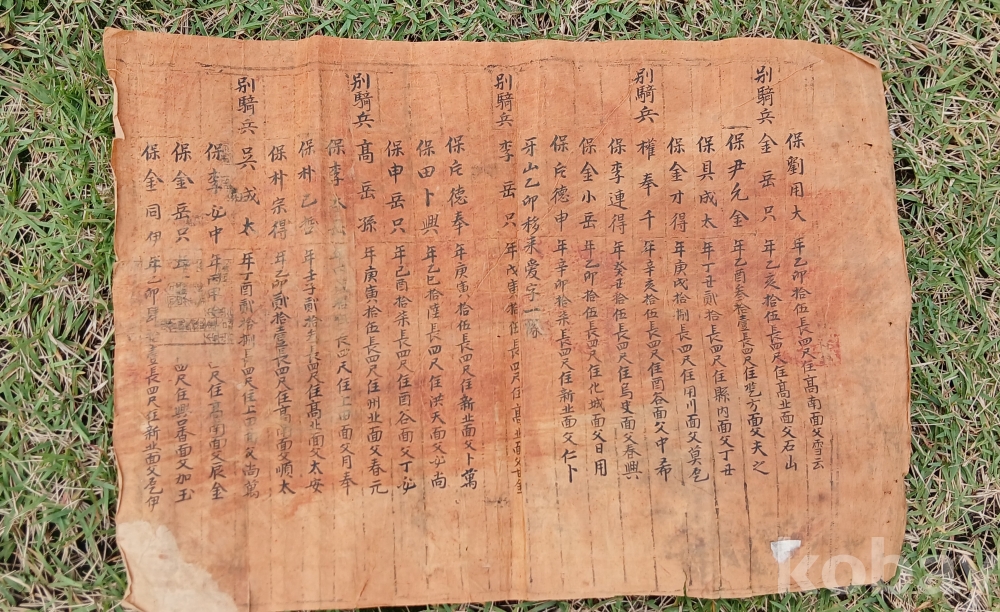 保劉用大 年乙卯拾伍長四尺住高南面父雪云
別騎兵 金岳只 年乙亥拾伍長四尺住高北面父石山
保尹允金 年乙酉叁拾壹長四尺住 方面父夫之
保具成太 年丁丑貳拾 長四尺住縣內面父丁丑
保金才得 年庚戌拾捌長四尺住用川面父莫
別騎兵 權奉千 年辛亥拾伍長四尺住酉谷面父中希
保李連得 年癸丑拾伍長四尺住烏史面父春興
保金小岳 年乙卯拾伍長四尺住化城面父日用
保 德申 年辛卯拾柒長四尺住新北面父仁卜
牙山乙卯移來愛字一隊
別騎兵 李岳只 年戊寅拾伍長四尺住高北面父
保 德奉 年庚寅拾伍長四尺住新北面父卜萬
保田卜興 年乙巳拾陸長四尺住洪天面父 尚
保申岳只 年己酉拾柒長四尺住酉谷面父丁
別騎兵 高岳孫 年庚寅拾伍長四尺住州北面父春元
保李太 長四尺住上田面父月奉
保朴乙 年壬子貳拾 長四尺住高北面父太安
保朴宗得 年乙卯貳拾壹長四尺住 南面父順太
別騎兵 吳成太 年丁酉貳拾捌長四尺住上 面父尚萬
保李 中 年丙 尺住高南面父辰金
保金岳只 年 四尺住興 香面父加玉
保金同伊 年 卯 長四尺住新北面父 伊
kobay